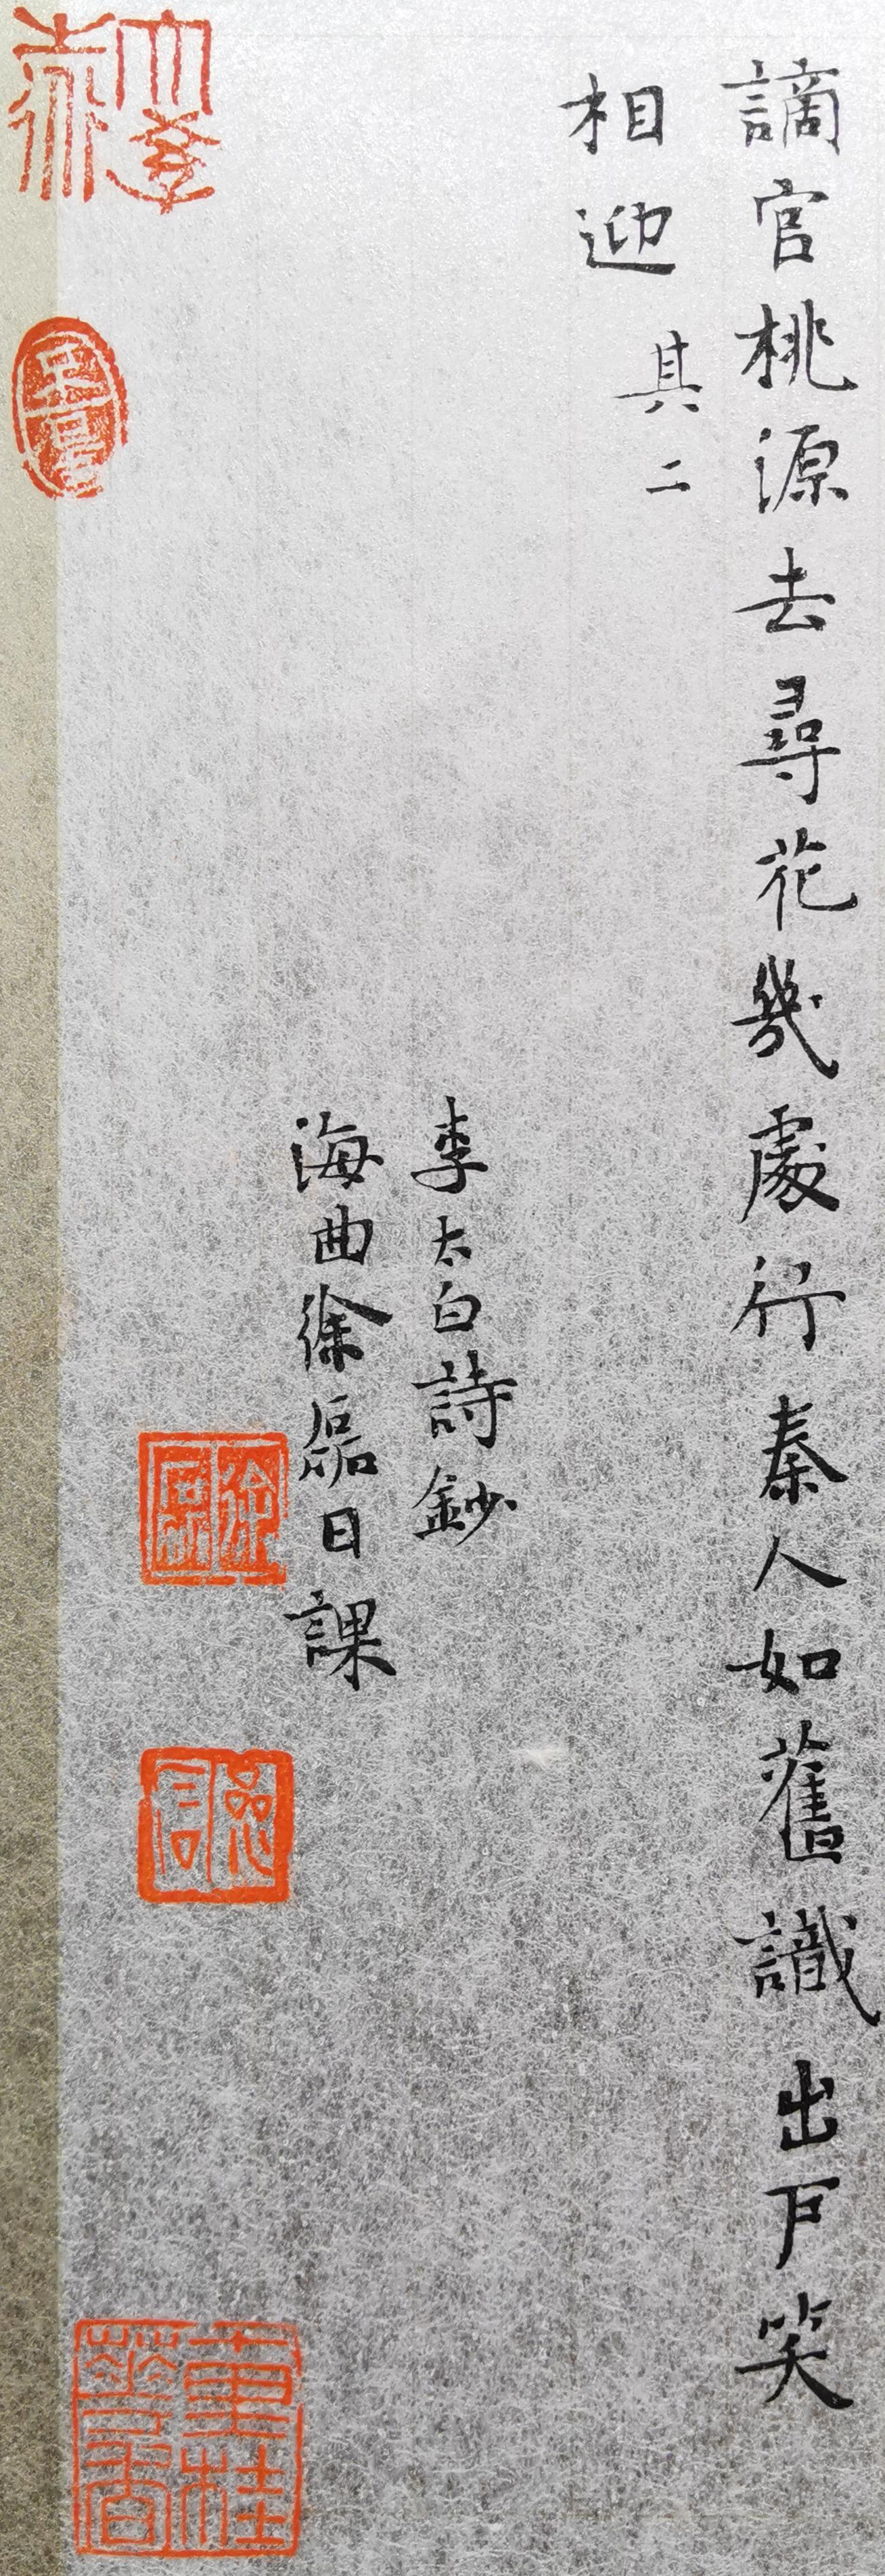 謫官桃源去尋花幾處行秦人如舊識出戶笑
相迎 其二
李太白詩鈔
海曲徐磊日課
徐磊